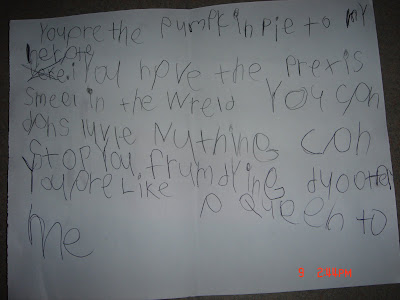 you are the pumpkin pie to my
herote
you have the prexis
smeel in the wreld you can
dans luvle Nything can
stop you frum dying
you are Like
a queen to
me